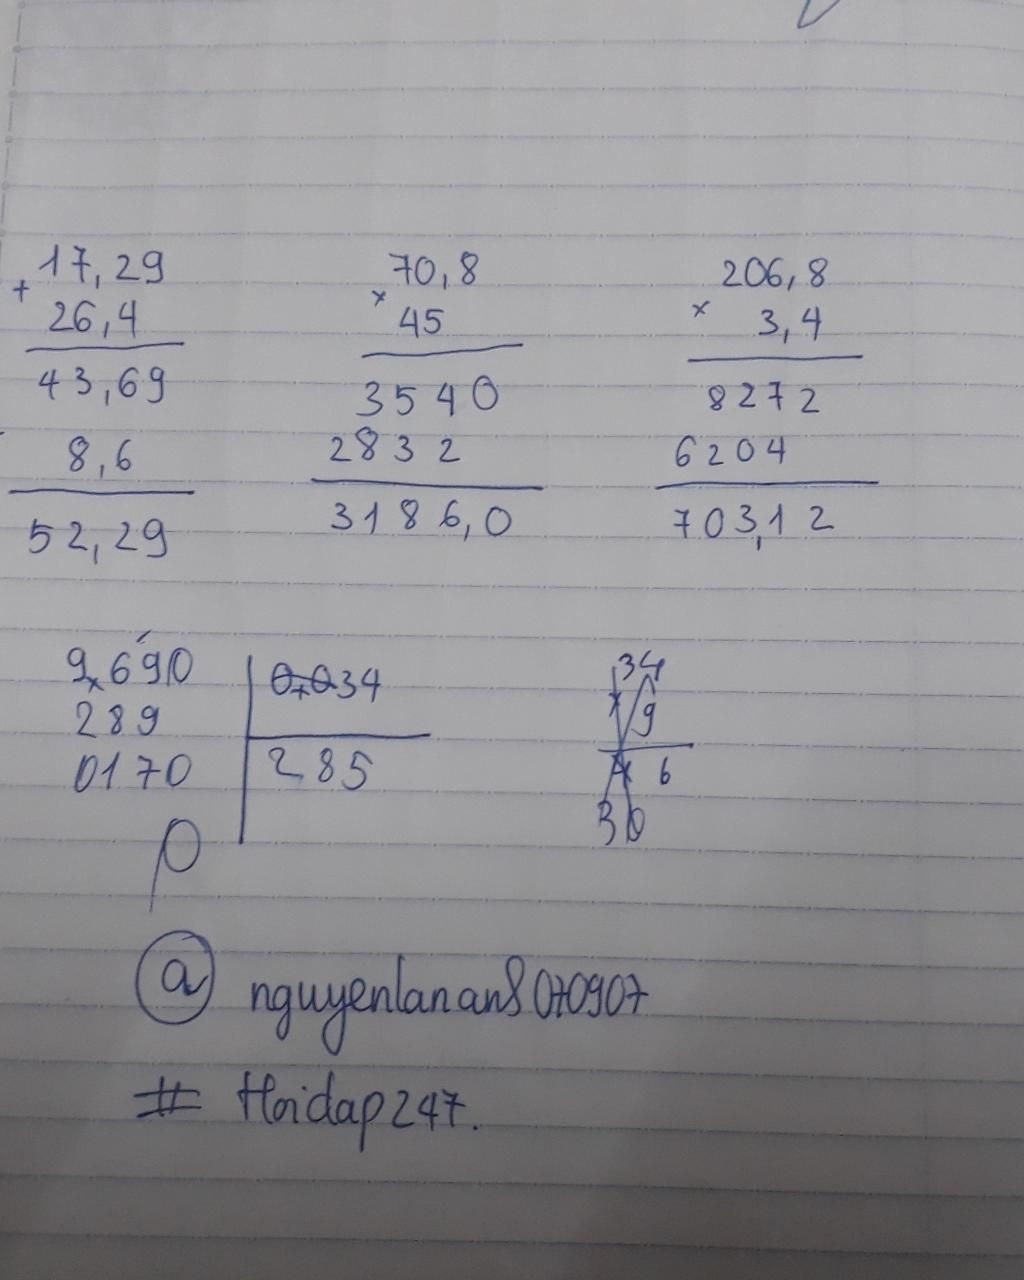 + 17,29
26,4
43,69
8,6
52,29
70,8
× 45
3540
2832
3186,0
206,8
× 3,4
8272
6204
703,12
9,690 | 0,034
289 | 285
0170
0
34
9
6
30
@ nguyenlananh070907
# Hoidap247.